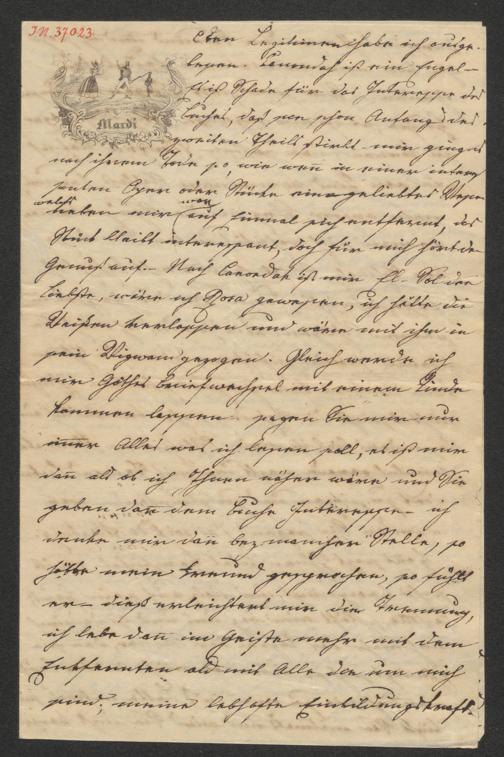 I.N. 37023
Mardi
Eben Legitimen habe ich ausge-
lesen. Canondah ist ein Engel –
es ist Schade für das Interesse des
Buches, daß sie schon Anfang des
zweiten Theils stirbt. mir ging es
nach ihrem Tode so, wie wenn in einer interes
santen Oper oder Stücke eine geliebtes Wesen
welches neben mir auf einmal sich entfernt, das
Stück bleibt interessant, doch für mich hört der
Genuß auf. – Nach Canondah ist mir El. Sol der
Liebste, wäre ich Rosa gewesen, ich hätte die
Weißen verlassen und wäre mit ihm in
sein Wigwam gezogen. Gleich werde ich
mir Göthes Briefwechsel mit einem Kinde
kommen lassen. sagen Sie mir nur
immer Alles was ich lesen soll, es ist mir
dann als ob ich Ihnen näher wäre und Sie
geben dem Buche Interesse – ich
denke mir dann bey mancher Stelle, so
hätte mein Freund gesprochen, so fühlt
er – dieß erleichtert mir die Trennung,
ich lebe dann im Geiste mehr mit dem
Entfernten als mit Alle die um mich
sind; meine lebhafte Einbildungskraft